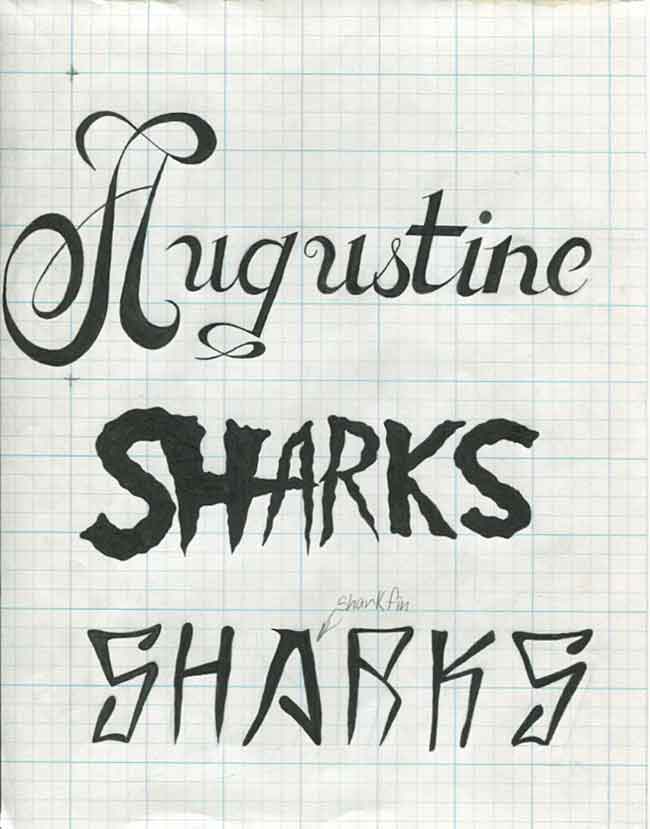 Augustine
SHARKS
shark fin
SHARKS